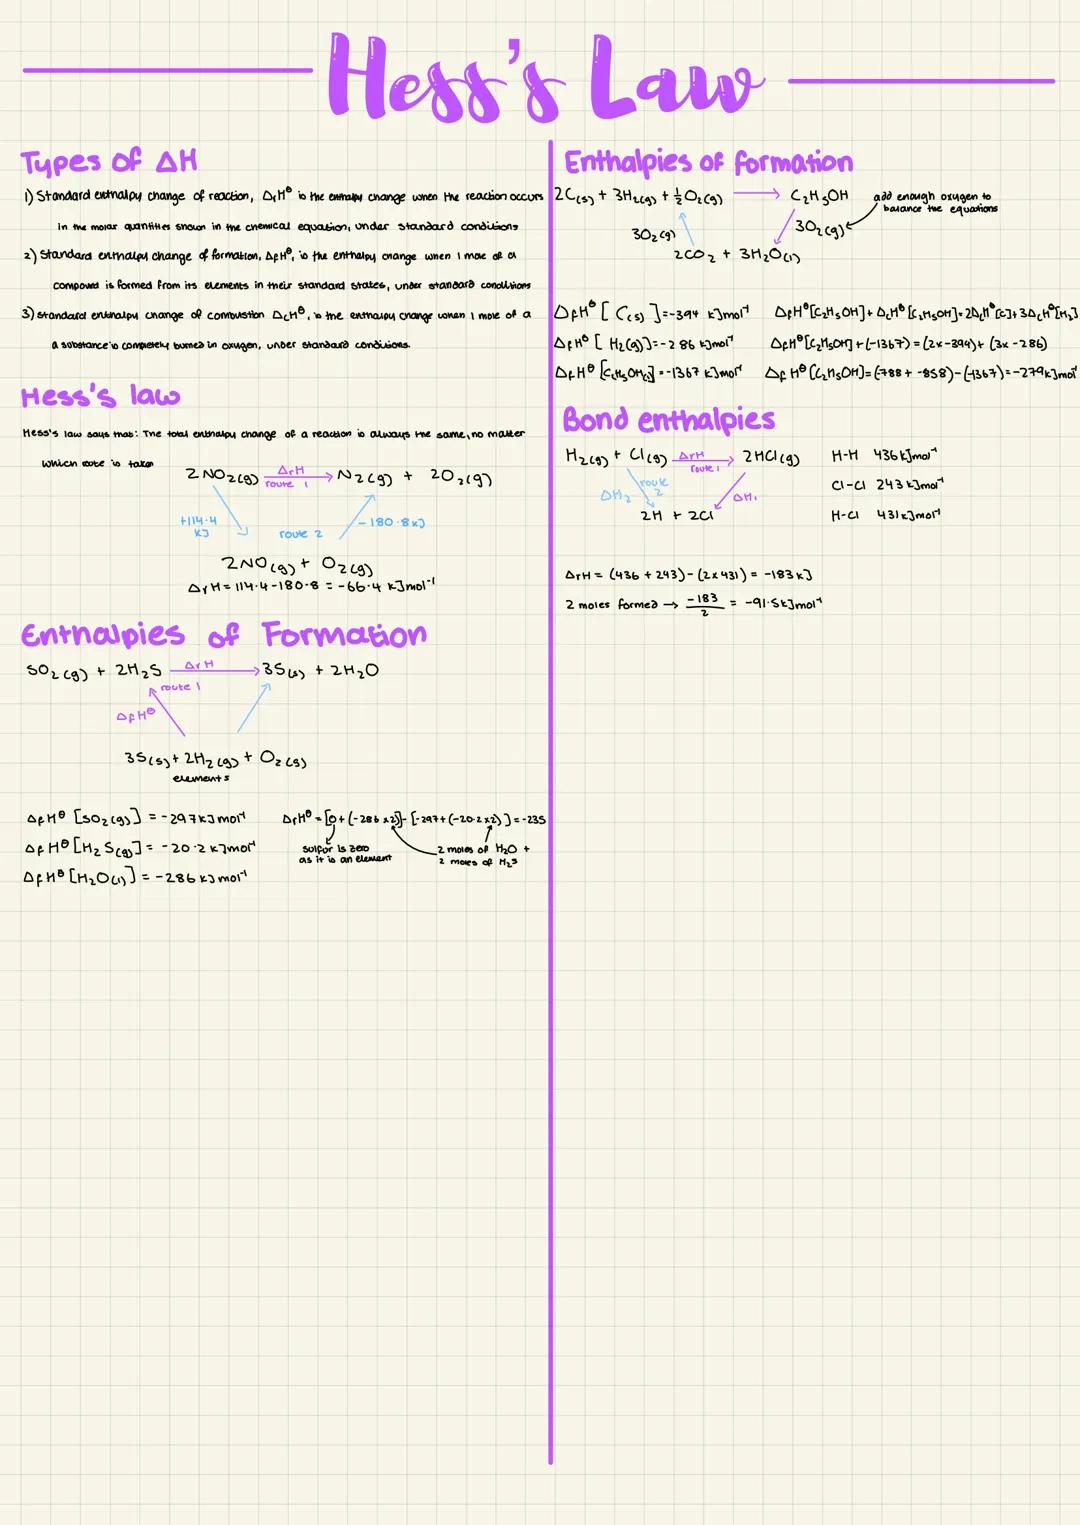 Hess's Law
Types of ΔH
1) Standard enthalpy change of reaction, ΔrH⦵ is the enthalpy change when the reaction occurs
in the molar quantities shown in the chemical equation, under standard conditions
2) Standard enthalpy change of formation, ΔfH⦵, is the enthalpy change when 1 mole of a
compound is formed from its elements in their standard states, under standard conditions
3) standard enthalpy change of combustion ΔcH⦵, is the enthalpy change when 1 mole of a
a substance is completely burned in oxygen, under standard conditions.
Hess's law
Hess's law says that: The total enthalpy change of a reaction is always the same, no matter
which route is taken
2NO₂(g) ΔrH → N₂(g) + 2O₂(g)
route 1
+114.4
KJ
route 2
-180.8kJ
2NO(g) + O₂(g)
ΔrH = 114.4-180.8 = -66.4 kJmol⁻¹
Enthalpies of Formation
SO₂(g) + 2H₂S ΔrH → 3S(s) + 2H₂O
route 1
ΔfH⦵
3S(s) + 2H₂(g) + O₂(g)
elements
ΔfH⦵ [SO₂(g)] = -297kJmol⁻¹
ΔfH⦵ [H₂S(g)] = -20.2 kJmol⁻¹
ΔfH⦵ [H₂O(l)] = -286kJmol⁻¹
ΔrH⦵ = [0+(-286×2)]-[-297+(-20.2×2)] = -235
sulfur is zero
as it is an element
2 moles of H₂O +
2 moles of H₂S
Enthalpies of formation
2C(s) + 3H₂(g) + ½O₂(g) → C₂H₅OH
add enough oxygen to
balance the equations
3O₂(g)
3O₂(g)
2CO₂ + 3H₂O(l)
ΔfH⦵ [C(s)] = -394 kJmol⁻¹
ΔfH⦵ [H₂(g)] = -286 kJmol⁻¹
ΔfH⦵ [C₂H₅OH(l)] = -1367 kJmol⁻¹
ΔfH⦵[C₂H₅OH] + ΔcH⦵[C₂H₅OH] = 2ΔcH⦵[C] + 3ΔcH⦵[H₂]
ΔfH⦵[C₂H₅OH] + (-1367) = (2x-394) + (3x-286)
ΔfH⦵[C₂H₅OH] = (-788 + -858) - (-1367) = -279kJmol⁻¹
Bond enthalpies
H₂(g) + Cl(g) ΔrH → 2HCl(g)
route 1
ΔH₂
route
2
ΔH₁
2H + 2Cl
H-H 436kJmol⁻¹
Cl-Cl 243kJmol⁻¹
H-Cl 431kJmol⁻¹
ΔrH = (436 + 243) - (2×431) = -183kJ
2 moles formed → -183/2 = -91.5kJmol⁻¹